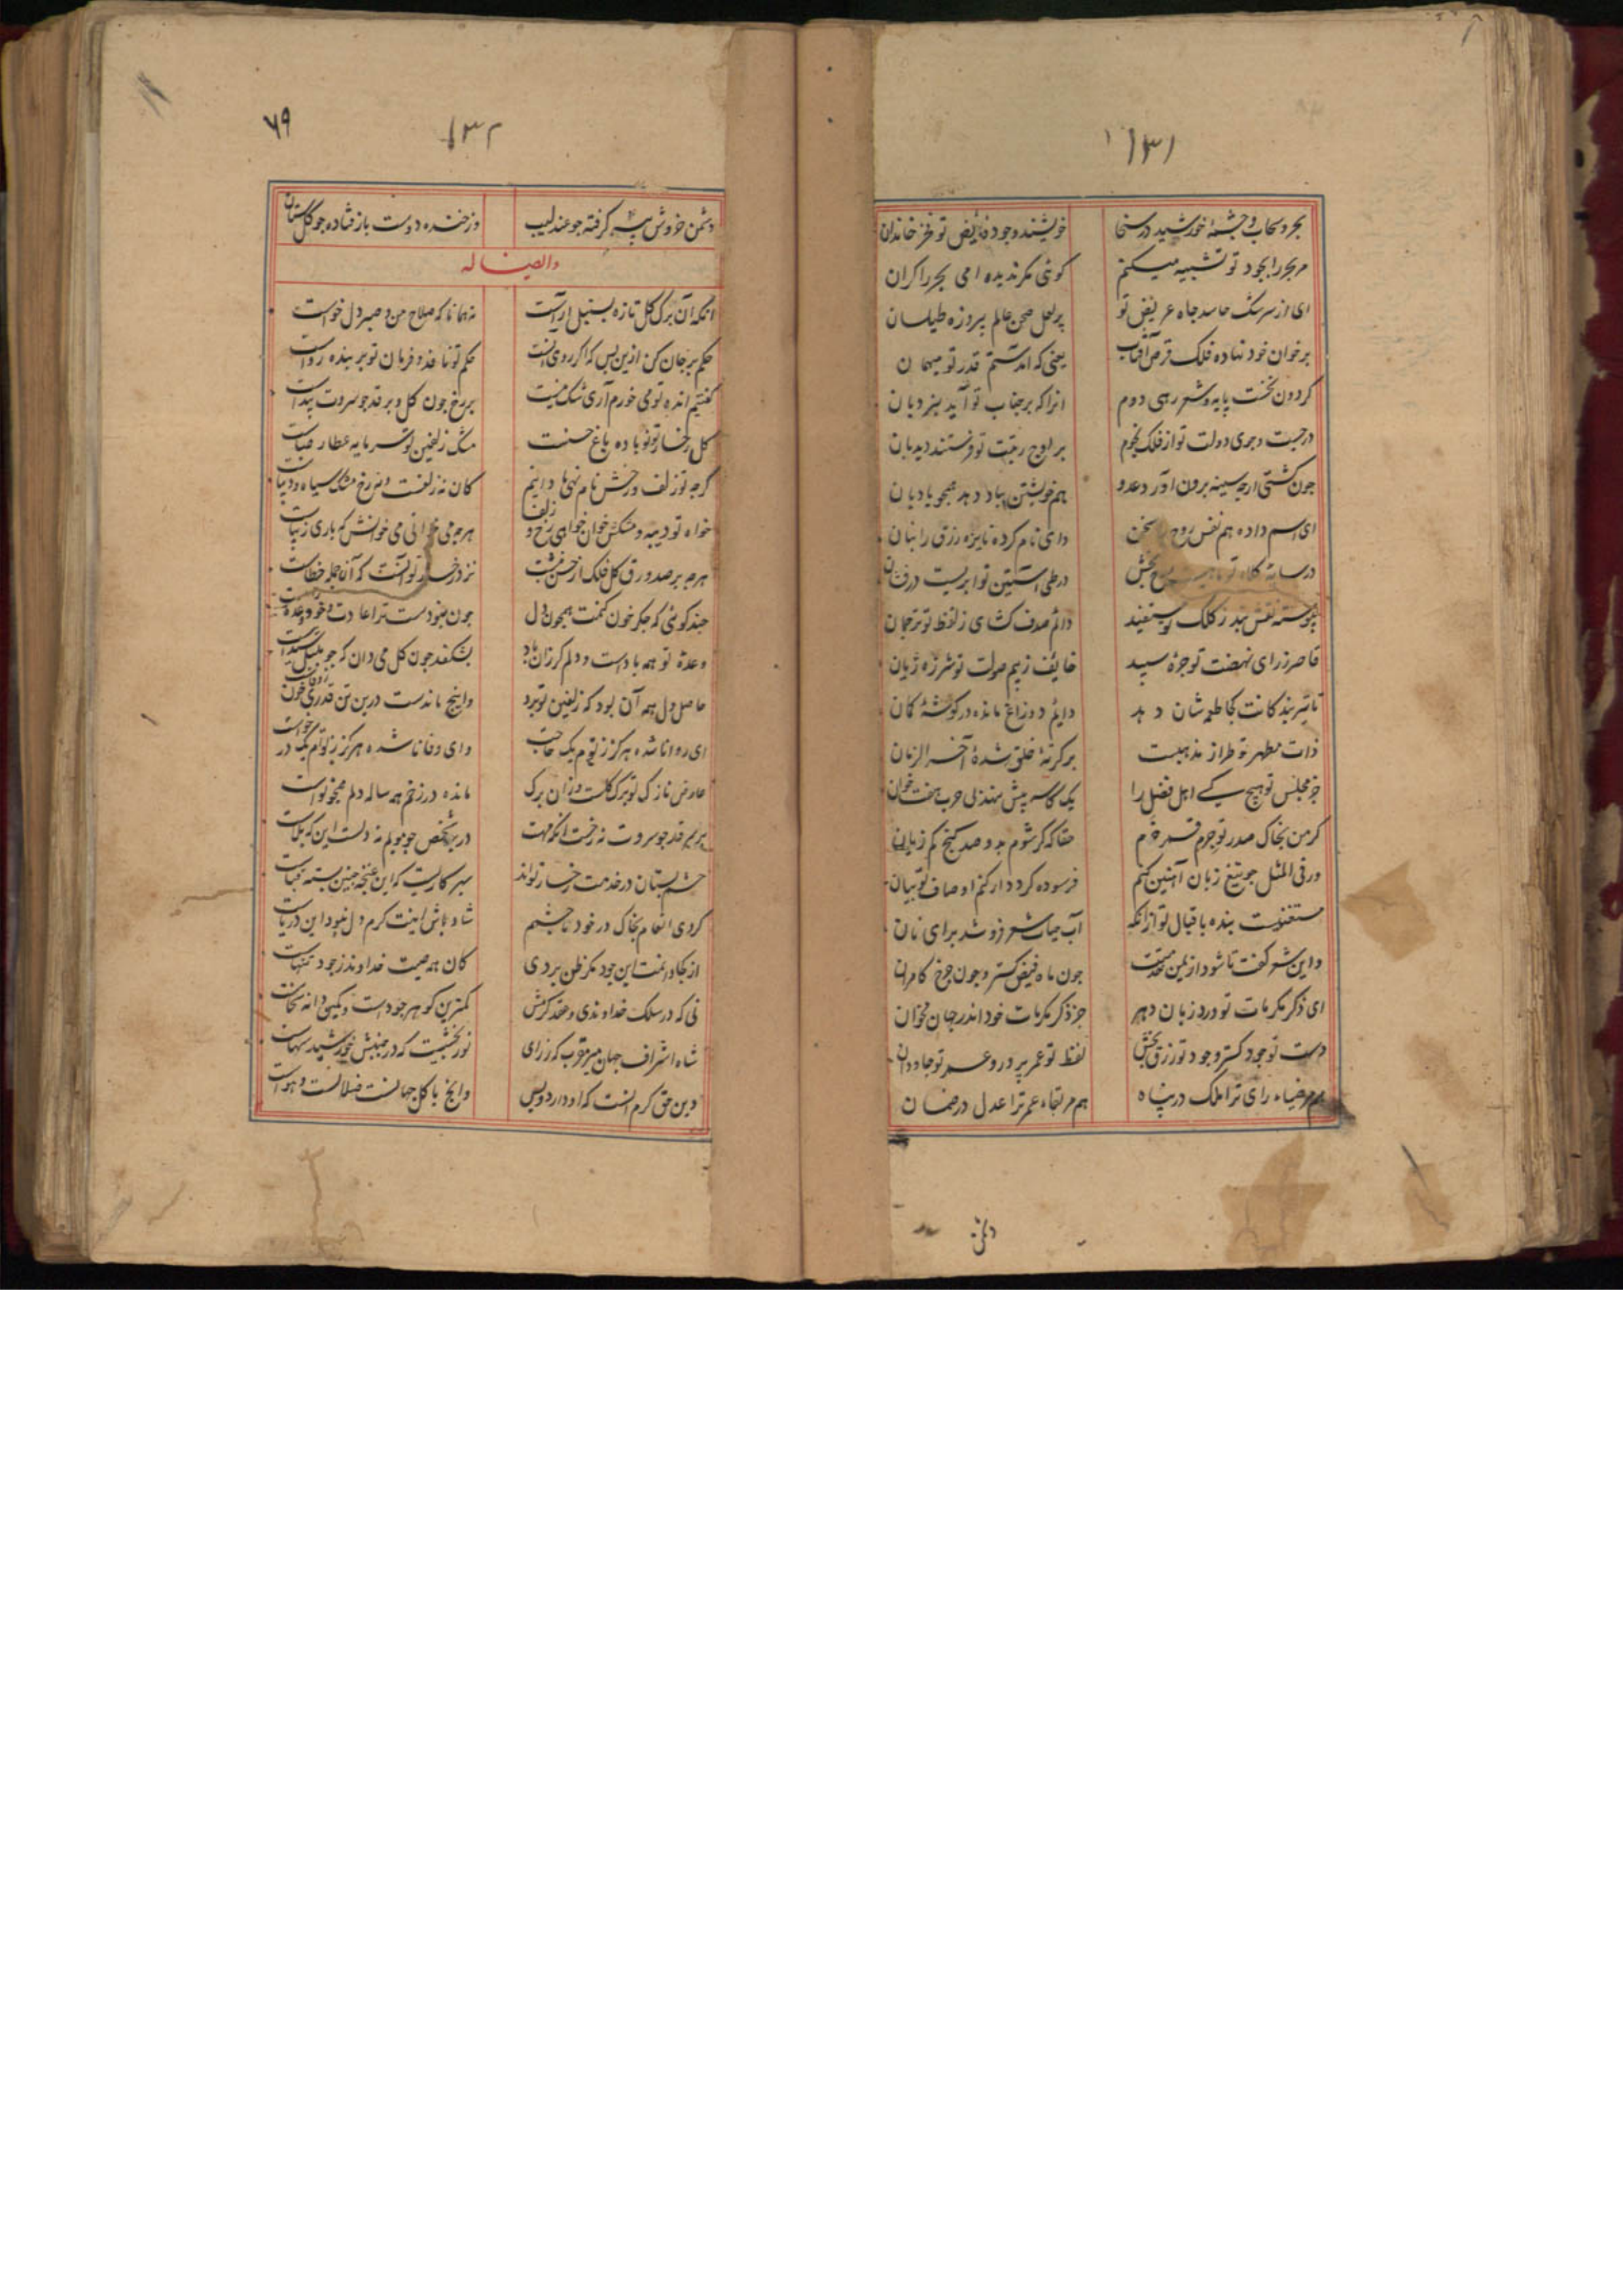 ۱۳۱
بحر و سحاب و چشمهٔ خورشید در سخا خویشند و جود فائض تو فخر خاندان
مر بحر را بجود تو تشبیه میکنم کوئی مکر ندیده امی بحر را کران
ای از سرشک حاسد جاه عریض تو پر لعل صحن عالم پیروزه طیلسان
بر خوان خود نهاده فلک قرص آفتاب یعنی که آمدستم قدر تو میهمان
کردون نخست پایه و شعر رهی دوم انرا که بر جناب تو آید بنردبان
در جست و جوی دولت تو از فلک نجوم بر اوج رتبت تو فرستند دیدبان
جون کشتی ارچه سینه برون آورد عدو هم خویشتن بباد دهد همجو بادبان
ای اسم داده هم نفس روح را سخن وای نام کرده نایزه رزق را بنان
در سایهٔ کلاه تو در طی آستین تو ابریست درفشان
پیوسته نقش بند ز کلک تو مستفید دائم صدف کشای ز لفظ تو ترجمان
قاصر ز رای نهضت تو جرهٔ سپید خایف ز بیم صولت تو شرزه ژیان
تاثیر بند کانت کجا طعمه شان دهد دایم دو زاغ مانده در کوشهٔ کمان
ذات مطهر تو طراز مذهبست بر کرتهٔ خلق شدهٔ آخر الزمان
جز مجلس تو هیچ کسی اهل فضل را یک کاسه پیش ننهد بی حرب هفت خوان
کر من بخاک صدر تو جرم قمر خرم حقا که کر شوم بدو صد کنج کم زیان
ور فی المثل جو تیغ زبان آهنین کنم فرسوده کردد ار کنم اوصاف تو بیان
مستغنیست بنده باقبال تو از انکه آب حیات شعر فروشد برای نان
و این شعر کفت تا شود از یمن مدحتت جون ماه فیض کستر و جون چرخ کامران
ای ذکر مکرمات تو ورد زبان دهر جز ذکر مکرمات خود اندر جهان مخوان
دست تو جود کستر و جود تو رزق بخش لفظ تو عمر پرور و عمر تو جاودان
هم مر ضیاء رای ترا ملک در پناه هم مر بقاء عمر ترا عدل در ضمان
دشمن
۶۹
۱۳۲
دشمن خروش بیهده کرفته جو عندلیب وز خنده دوست باز فتاده جو کلستان
و ایضاً له
انکه آن برک کل تازه بسنبل اراست نه همانا که صلاح من و صبر دل خواست
حکم بر جان کن ازین پس که اکر روی اینست حکم تو نافذ و فرمان تو بر بنده رواست
کفتیم انده تو می خورم آری شک نیست بر رخ جون کل و بر قد جو سروت پیداست
کل رخسار تو نوباده باغ حسنست مشک زلفین تو سرمایه عطار صباست
کرجه تو زلف و رخش نام نهی ما دانیم کان نه زلفست و نه رخ مشک سیاه و دیباست
خواه تو دیبه و مشکش خوان خواهی رخ و زلف هرجه می خوانی می خوانش که باری زیباست
هرجه بر صد ورق کل فلک از حسن نبشت نزد رخسار تو آنست که آن جمله خطاست
جند کوئی که جکر خون کنمت همجون دل جون نبودست ترا عادت و خود وعده وفاست
وعدهٔ تو همه بادست و دلم کر زان باد بشکفد جون کل می دان که جو بلبل شیداست
حاصل دل همه آن بود که زلفین تو برد وانج ماندست درین تن قدری خون
ای روا نا شده هرکز ز تو ام یک حاجت وای وفا نا شده هرکز ز تو ام یک درخواست
عارض نازک تو برک کلست و زان برک مانده در زخم همه ساله دلم همجو نواست
بریم قد جو سروت نه رخست انکه مهست در برم شخص جو مویم نه دلست این که بلاست
چشم بستان در خدمت رخسار تواند سبز کاریست که این غنجه جنین بسته قباست
کردی انعام بخاک در خود تا جشمم شاد باش اینت کرم دل نبود این دریاست
از کجا دانمت این جود مکر ظن بردی کان همه صیت خداوند ز جود تنهاست
نی که در سلک خداوندی و عقد کرمش کمترین کوهر جودست و یکین دانه سخاست
شاه اشراف جهان میر مقرب که ز رای نور بخشیست که در جنبش خورشید سهاست
دین حق کرم اینست که او دارد و بس وانج با کل جهانست فضلالست و هواست